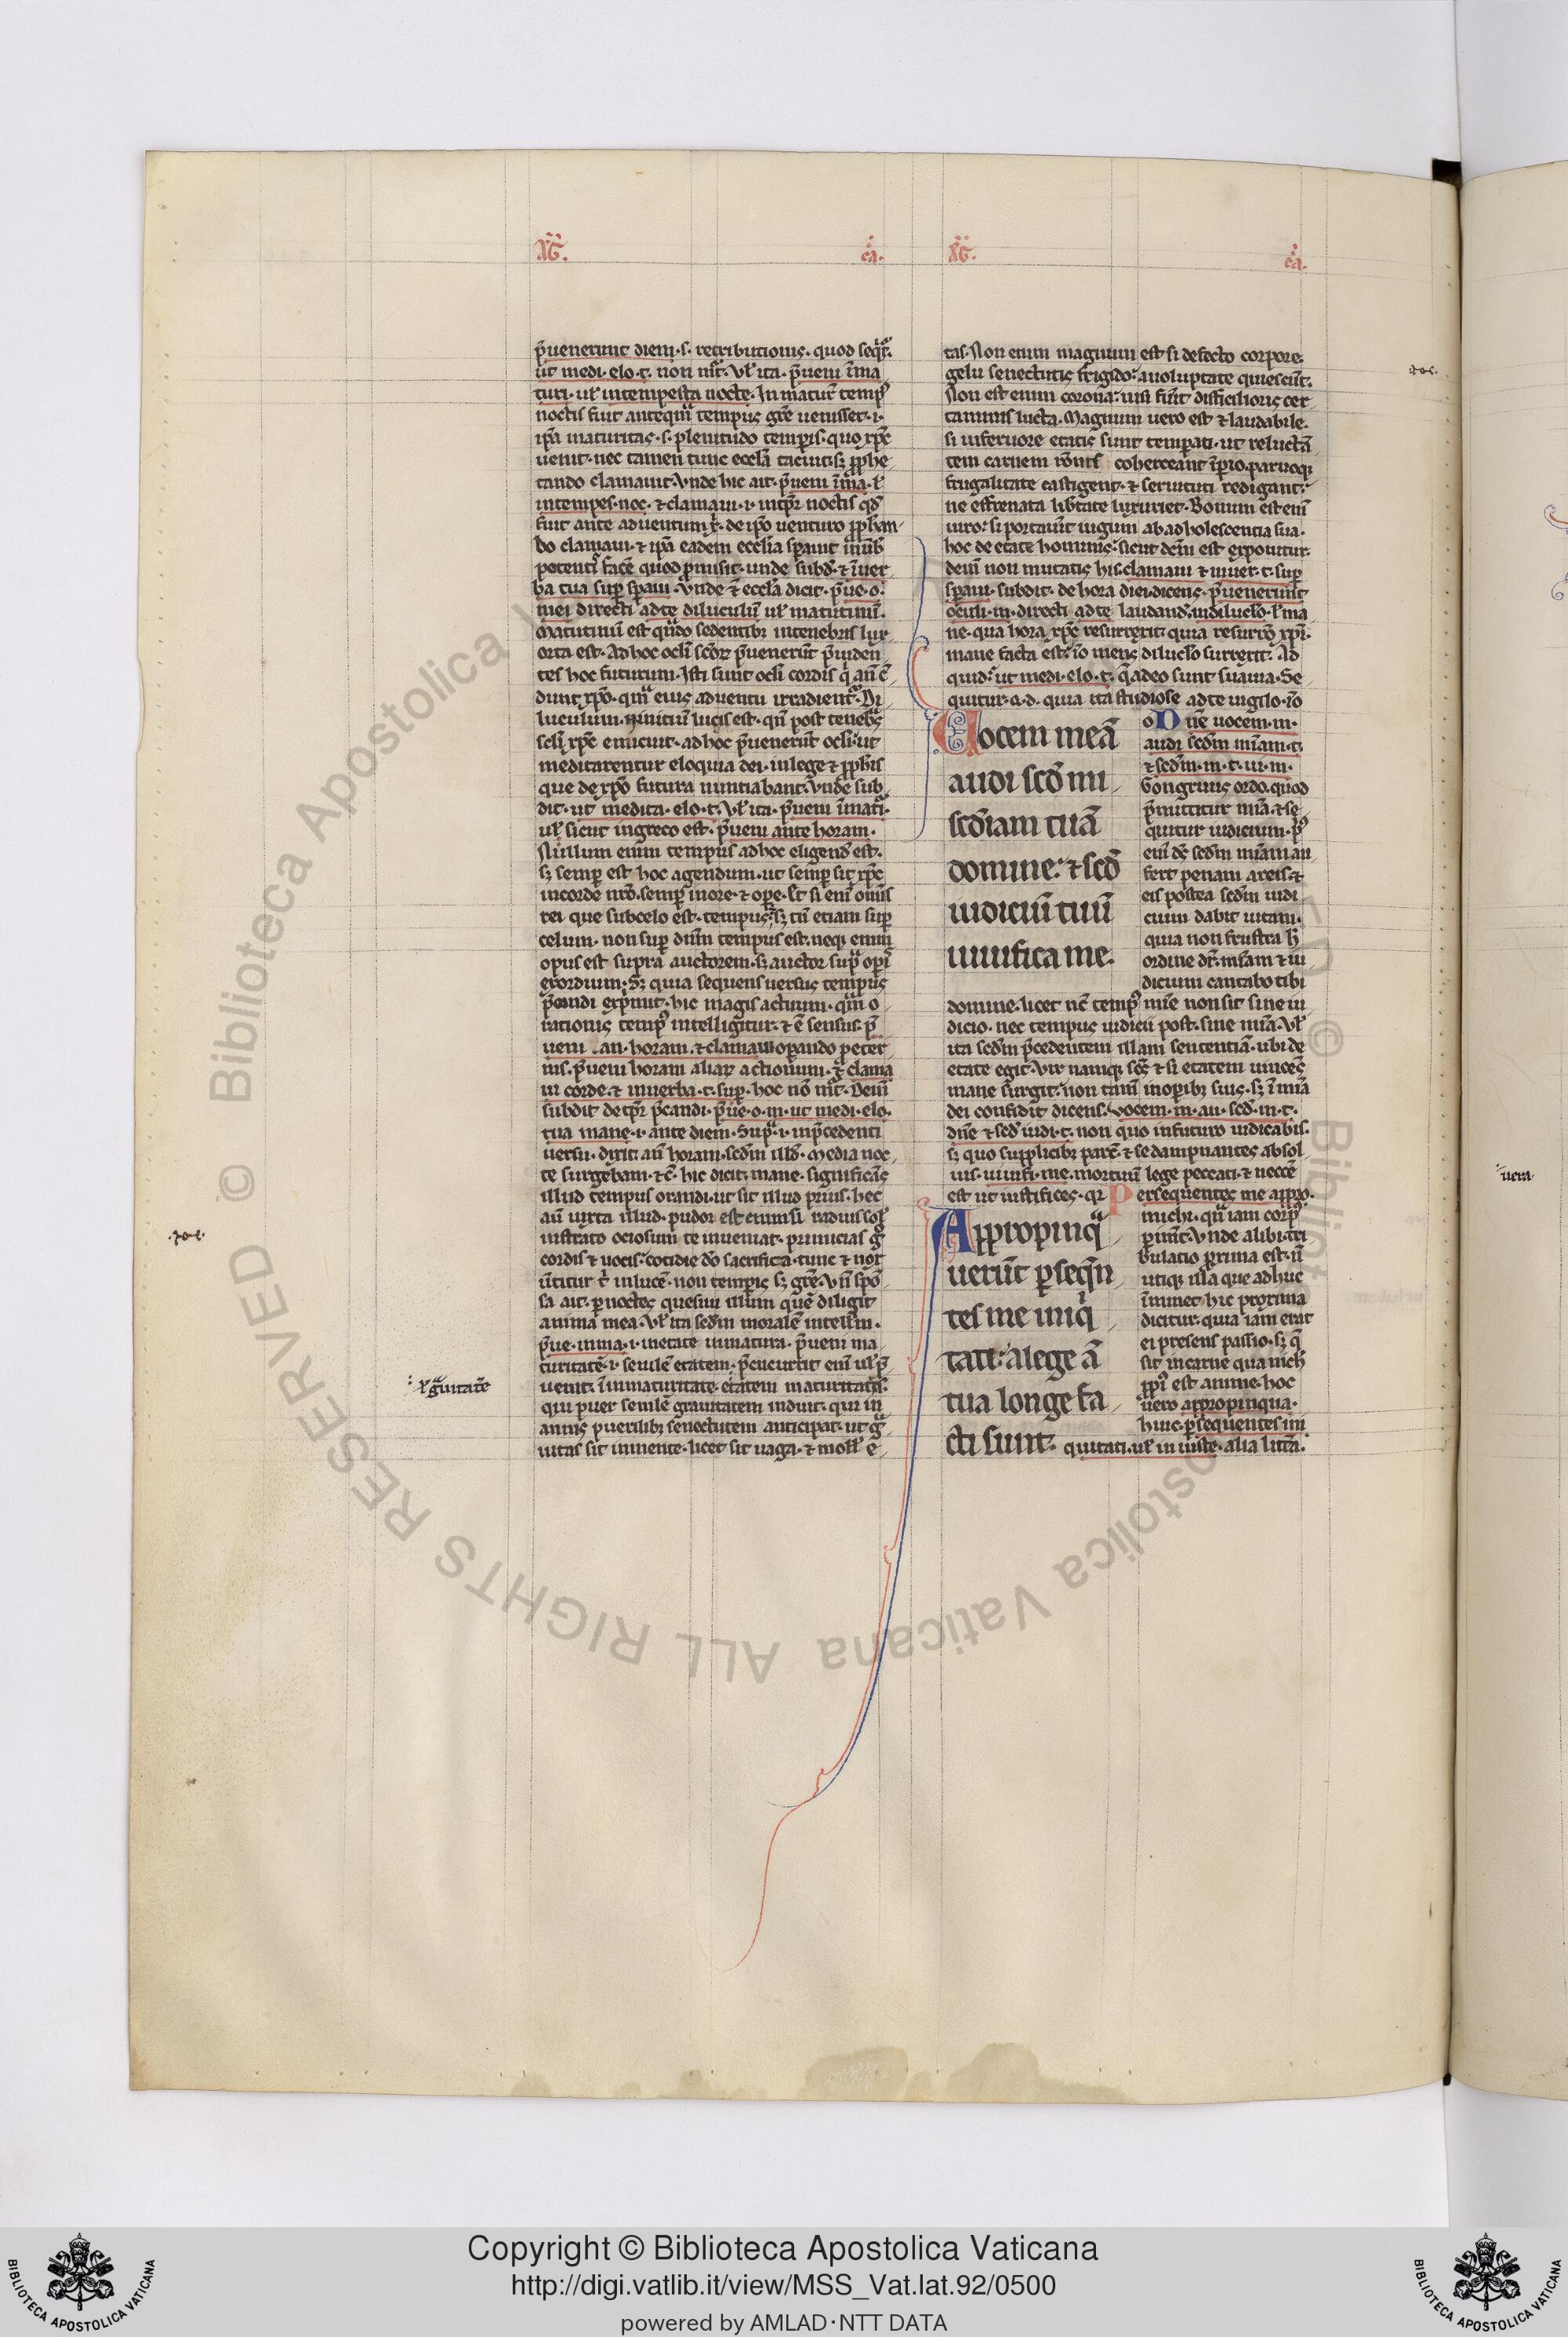 p̄uenerunt diem·s· retributionis· quod seq̄t᷑.
ut medi·elo·t· non m̄t᷑· Vł ita· p̄ueni īma
turi· uł intempesta nocte· In maturū tempꝰ
noctis fuit anteqͣm tempus gr̄e uenisset·i·
ip̄a maturitas·s· plenitudo temporis· quo xp̄c
uenit· nec tamen tunc eccl̄a tacuit· sꝫ ꝓphe
tando clamauit· Vnde hic ait· p̄ueni īma·ł
intempes·noc· ⁊ clamaui·i· in tp̄r noctis qd̄
fuit ante aduentum x̄· de ip̄o uenturo ꝓphan
do clamaui· ⁊ ip̄a eadem eccl̄ia sꝑauit in uerb̄
potenter face quod ꝓmisit· unde subd̄· ⁊ īuer
ba tua suꝑ sꝑaui· Vnde ⁊ eccl̄a dicit· p̄ue·o·
mei directi ad te diluculū uł matutinū·
Matutinū est qn̄do sedentibꝫ in tenebris lux
orta est· Ad hoc ocl̄i sc̄oꝝ p̄uenerūt p̄uiden
tes hoc futurum· Isti sunt ocl̄i cordis
dunt xp̄o· qm̄ eius aduentu irradient᷑· Di
luculum· initiū lucis est· qn̄ post tenebͣs
scl̄i xp̄c emicuit· ad hoc p̄uenerūt ocl̄i· ut
meditarentur eloquia dei· in lege ⁊ ꝓph̄is
que de xp̄o futura nuntiabant· Vnde sub
dit· ut medita·elo·t· Vł ita· p̄ueni īmatͥ·
uł sicut in greco est· p̄ueni ante horam·
Nullum enim tempus ad hoc eligend̄ est·
sꝫ semꝑ est hoc agendum· ut semꝑ sit xp̄c
in corde nr̄o· semꝑ in ore· ⁊ oꝑe· Et si enī om̄is
rei que sub celo est· tempus· sꝫ tn̄ etiam suꝑ
celum· non suꝑ dn̄m tempus est· neqꝫ enim
opus est supra auctorem· sꝫ auctor supͣ oꝑis
exordium· Sꝫ quia sequens uersus tempus
p̄candi exp̄mit· hic magis actuum· qͣm o
rationis tempꝰ intelligitur· ⁊ ē sensus· p̄
ueni an·horam· ⁊ clamaui oꝑando peter
nis· p̄ueni horam aliaꝝ actionum· ⁊ clama
ui corde· ⁊ in uerba·t·suꝑ· hoc nō m̄t᷑· Dein̄
subdit de tp̄r p̄candi· p̄ue·o·m·ut medi·elo·
tua mane·i·ante diem· Supͣ·i·in p̄cedenti
uersu· dixit· an̄ horam· scd̄m illd̄· Media noc
te surgebam· ⁊c̄· hic dicit· mane· significās
illud tempus orandi· ut sit illud prius· hec
aū iuxta illud· pudor est enim si radius sol̄
inlustrato ociosum te inueniat· primicias gͦ
cordis ⁊ uocis· cotidie deo sacrifica· tunc ⁊ nox
ūtitur t̄ in lucē· non temporis sꝫ gr̄e· Vn̄ spō
sa ait· ꝑ noctes quesiui illum quē diligit
anima mea· Vł ita scd̄m moralē intellm̄·
p̄ue·inma·i·in etate inmatura· p̄ueni ma
turitatē·i·senilē etatem· p̄cucurrit enī uł p̄
uenit· īmaturitate etatem maturitatis·
qui puer senilē grauitatem induit· qui in
annis puerilibꝫ senectutem anticipat· ut gͣ
uitas sit in mente· licet sit uaga· ⁊ moll' e
gͣuitatē
tas· Non enim magnum est si defecto corpore
gelu senectutis frigido· a uoluptate quiescūt·
Non est enim corona· nisi fu̅it difficilioris cer
taminis lucta· Magnum uero est ⁊ laudabile·
si in feruore etatis sunt temperati· ut reluctā
tem carnem coherceant īꝑio· paruoqꝫ
frugalitate castigent· ⁊ seruituti redigant·
ne effrenata lib̄tate luxuriet· Bonum est enī
uiro· si portauīt iugum ab adholescentia sua·
hoc de etate hominis· sicut dc̄m est exponitur·
dein̄ non mutatis his· clamaui ⁊ in uer·t·suꝑ
sꝑaui· subdit· de hora diei· dicens· p̄uenerunt
oculi·m·directi ad te laudand̄· in diluclo· ł ma
ne· qua hora xp̄c resurrexit· quia resurrō xp̄i·
mane facta est· iō mens diluclo surrexit· Ad
quid· ut medi·elo·t· q̄ adeo sunt suauia· Se
quitur·q·d· quia ita studiose ad te uigilo· iō
Vocem meā
audi scd̄ mi
scd̄iam tuā
domine: ⁊ scd̄
iudiciū tuū
uiuifica me.
o Dn̄e uocem·m·
audi scd̄m mīam·t·
⁊ scd̄m·m·t·ui·m·
Congruus ordo· quod
p̄mittitur mīa· ⁊ se
quitur iudicium· pͥꝰ
enī ds̄ scd̄m mīam au
fert penam a reis· ⁊
eis postea scd̄m iudi
cium dabit uitam·
quia non frustra h̄
ordine dr̄· mīam ⁊ iu
dicium cantabo tibi
domine· licet nc̄ tempꝰ mīe non sit sine iu
dicio· nec tempus iudicii post· sine mīa· Vł
ita scd̄m p̄cedentem illam sententiā· ubi de
etate egit· Vir namqꝫ sc̄s ⁊ si etatem uinces
mane surgit· non tam̄ in oꝑibꝫ suis· sꝫ ī mīa
dei confidit dicens· Vocem·m·au·scd̄·m·t·
dn̄e ⁊ scd̄ iudi·t· non quo in futuro iudicabis·
sꝫ quo supplicibꝫ parc̄· ⁊ se dampnantes absol
uis· uiuifi·me· mortuū lege peccati· ⁊ neccē
est ut iustifices· qꝛ Persequentes me appro·
Appropinqͣ
uerūt ꝑseqn̄
tes me iniqͥ
tati: a lege ā
tua longe fa
cti sunt.
michi· qm̄ iam corpꝰ
ꝑimūt· Vnde alibi· tri
bulatio proxima est· n̄
utiqꝫ illa que adhuc
īminet· hic proxima
dicitur· quia iam erat
ei presens passio· sꝫ q̄
fit in carne qua nich̄
ꝓpͥ est anime· hoc
uero appropinqua·
huic· ꝑsequentes in
quitati· uł in iuste· alia litt̄a·
uera
Copyright © Biblioteca Apostolica Vaticana
http://digi.vatlib.it/view/MSS_Vat.lat.92/0500
powered by AMLAD·NTT DATA
© Biblioteca Apostolica Vaticana ALL RIGHTS RESERVED
BIBLIOTECA APOSTOLICA VATICANA
BIBLIOTECA APOSTOLICA VATICANA